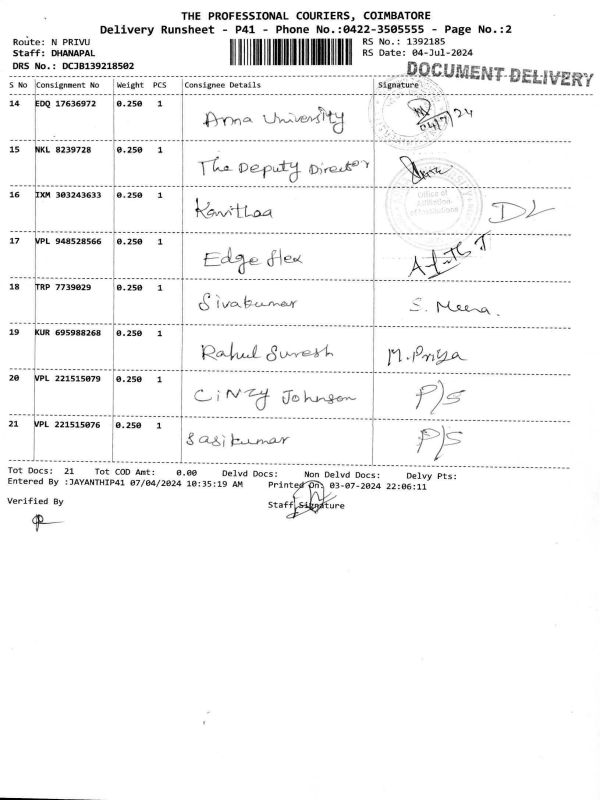 THE PROFESSIONAL COURIERS, COIMBATORE
Delivery Runsheet - P41 - Phone No.:0422-3505555 - Page No.:2
Route: N PRIVU RS No.: 1392185
Staff: DHANAPAL RS Date: 04-Jul-2024
DRS No.: DCJB139218502
DOCUMENT DELIVERY
S No Consignment No Weight PCS Consignee Details Signature
14 EDQ 17636972 0.250 1 Anna University 04/7/24
15 NKL 8239728 0.250 1 The Deputy Director
16 IXM 303243633 0.250 1 Kavithaa DL
Office of
Affiliation
of Institutions
17 VPL 948528566 0.250 1 Edge flex
18 TRP 7739029 0.250 1 Sivakumar S. Meena.
19 KUR 695988268 0.250 1 Rahul Suresh M. Priya
20 VPL 221515079 0.250 1 CiNZy Johnson P/S
21 VPL 221515076 0.250 1 Sasikumar P/S
Tot Docs: 21 Tot COD Amt: 0.00 Delvd Docs: Non Delvd Docs: Delvy Pts:
Entered By :JAYANTHIP41 07/04/2024 10:35:19 AM Printed On: 03-07-2024 22:06:11
Verified By Staff Signature